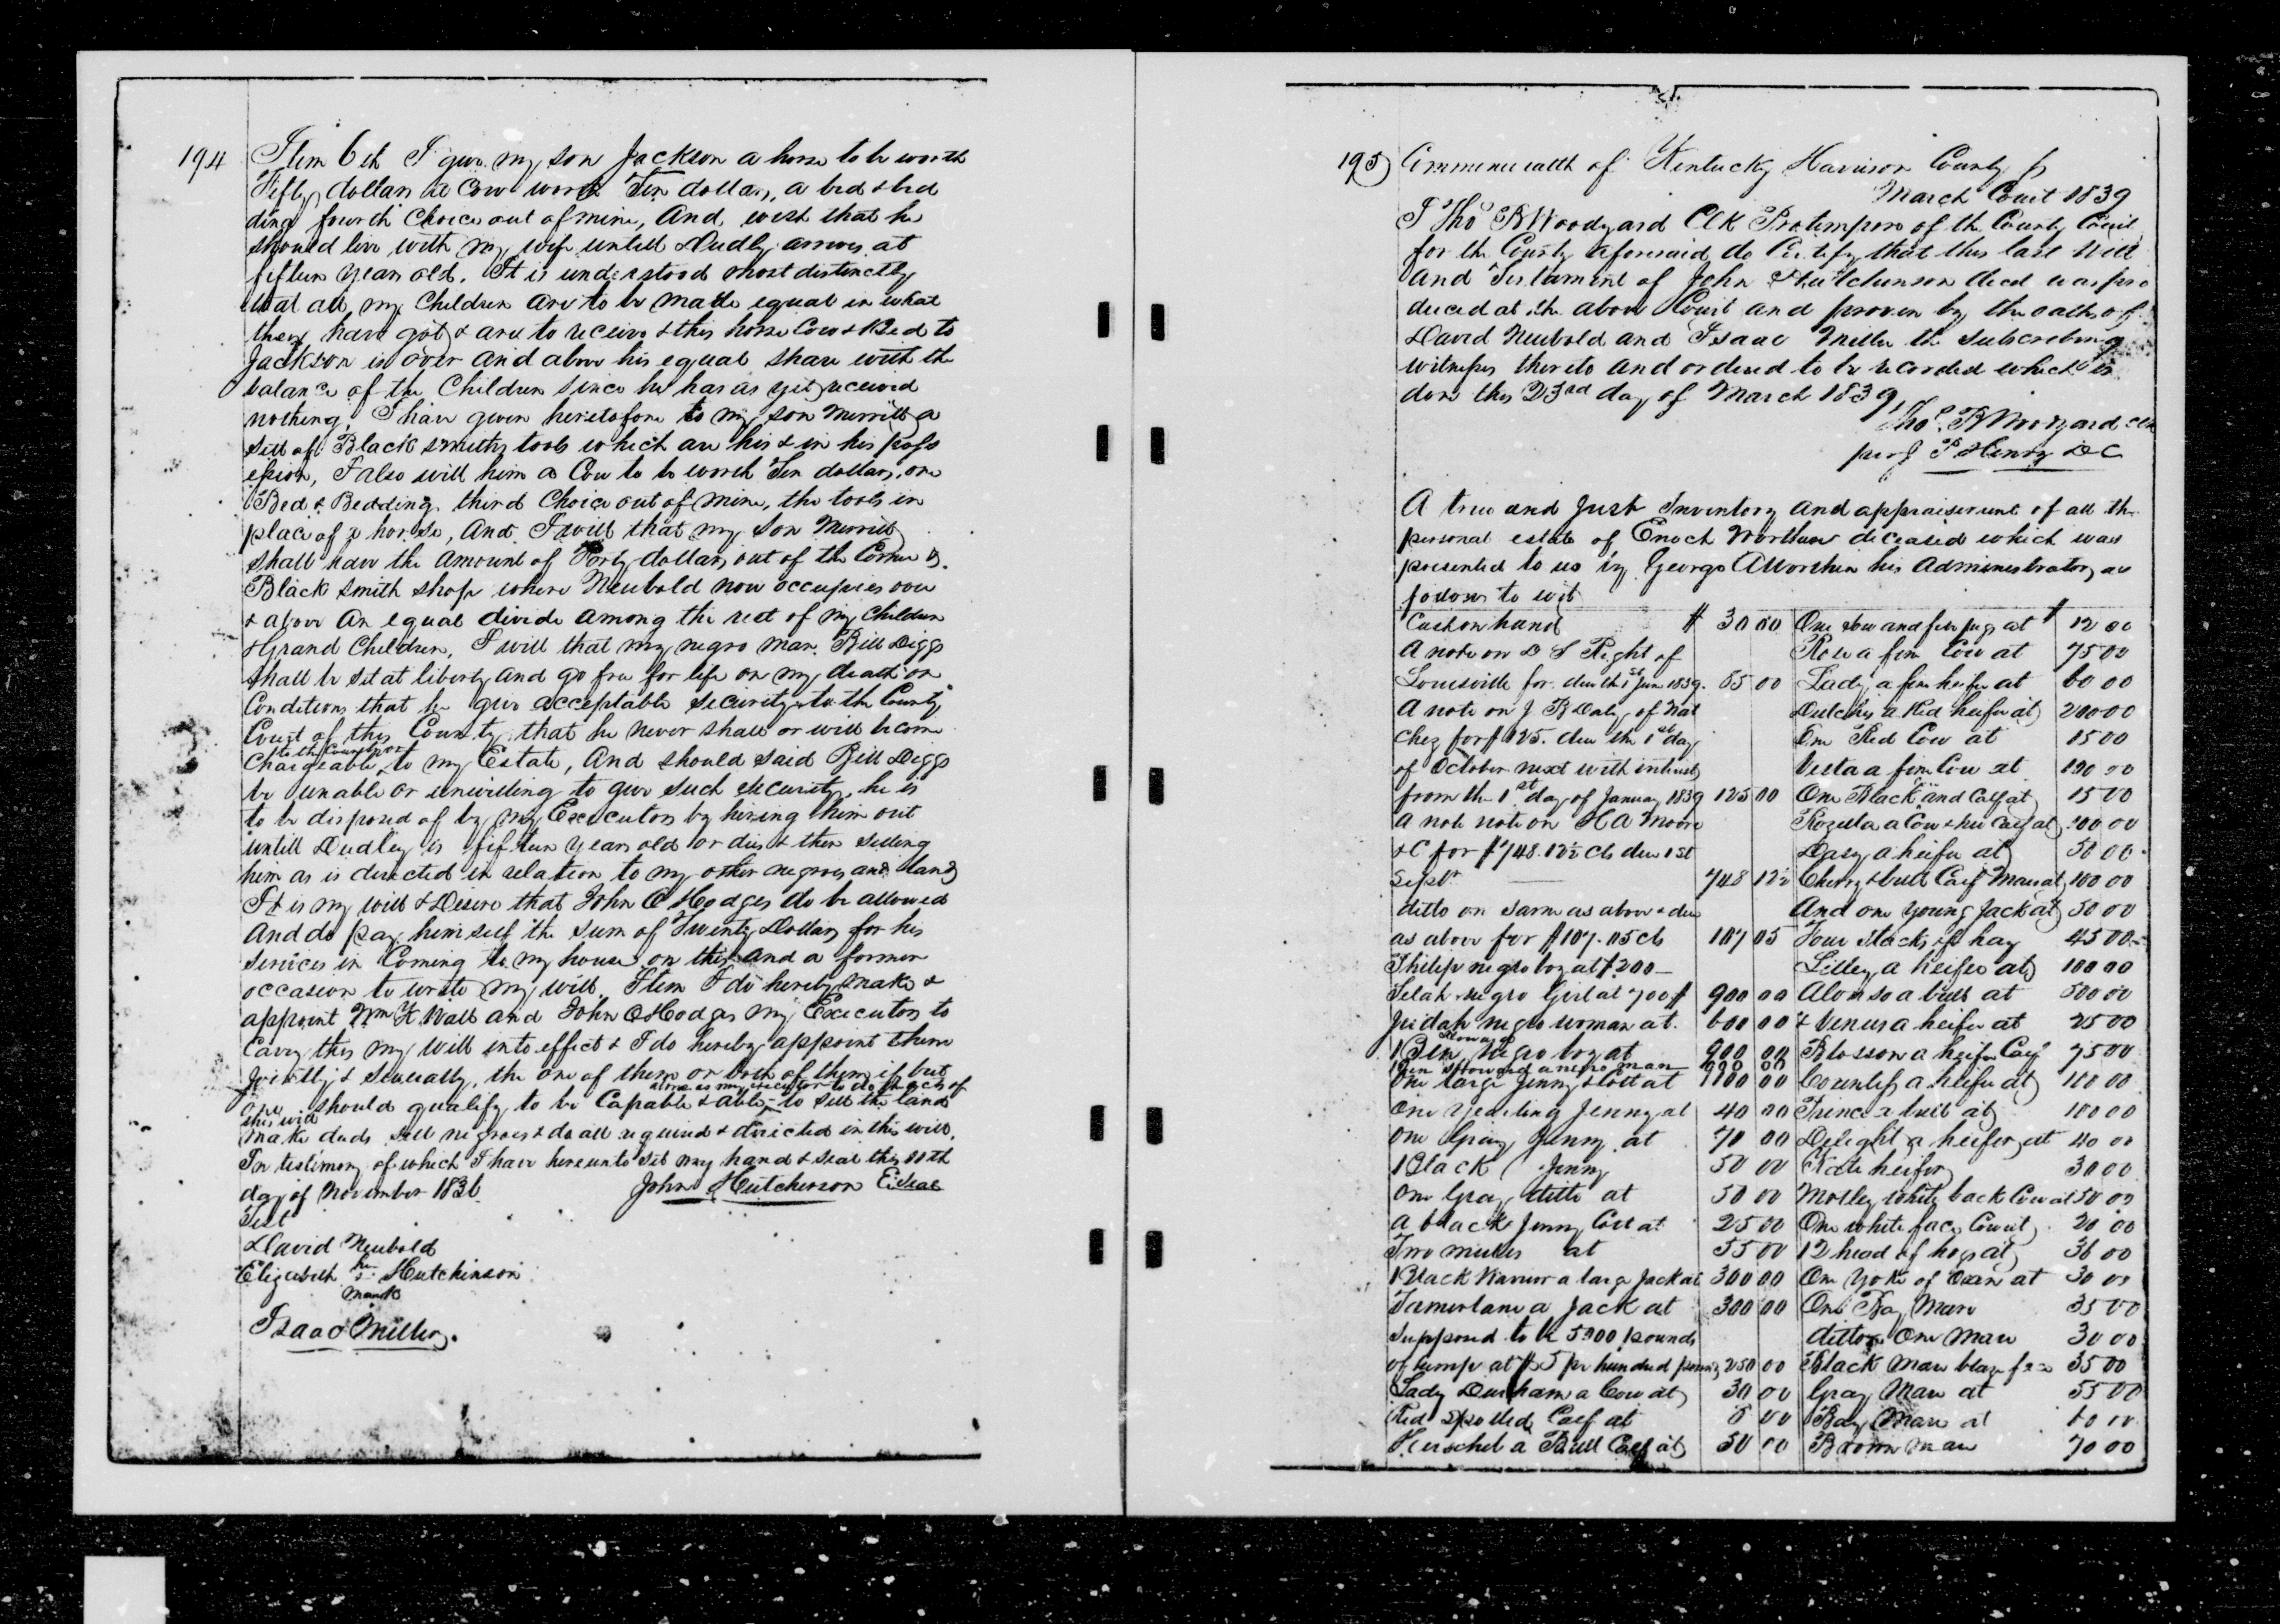 194
Item 6th I give my son Jackson a horse to be worth
Fifty dollars a Cow worth Ten dollars, a bed & bed
ding fourth Choice out of mine, And wish that he
should live with my wife untill Dudly arrives at
fifteen years old. It is understood most distinctly
that all my Children are to be made equal in what
they have got & are to receive & this horse Cow & Bed to
Jackson is over and above his equal share with the
balance of the Children since he has as yet received
nothing. I have given heretofore to my son Merrill a
sett of Black smiths tools which are his & in his poss
ession, I also will him a Cow to be worth Ten dollars, one
Bed & Bedding third Choice out of mine, the tools in
place of a horse, And I will that my son Merrill
shall have the amount of Forty dollars out of the Corner &
Black smith shop where Neubold now occupies over
& above an equal divide among the rest of my Children
& Grand Children. I will that my negro man Bill Diggs
shall be set at liberty and go free for life on my death on
Conditions that he give acceptable security to the County
Court of this County that he never shall or will become
to the County or
Chargeable to my Estate, And should said Bill Diggs
be unable or unwilling to give such security, he is
to be disposed of by my Executors by hiring him out
untill Dudley is fifteen years old or dies & then selling
him as is directed in relation to my other negroes and land
It is my will & Desire that John O Hodges do be allowed
And do pay himself the sum of Twenty Dollars for his
services in Coming to my house on this and a former
occasion to write my will. Item I do hereby make &
appoint Wm K Wall and John O Hodges my Executors to
Carry this my will into effect & I do hereby appoint them
jointly & severally, the one of them or both of them if but
alone as my executor to do the acts of
one should qualify to be Capable & able to sell the land
this will
make deeds sell negroes & do all required & directed in this will.
In testimony of which I have hereunto set my hand & seal this 10th
day of November 1836 John Hutcherson Seal
Test
David Neubold
Elizabeth her Hutchinson
mark
Isaac Miller
195
Commonwealth of Kentucky Harrison County Ss
March Court 1839
I Thos B Woodyard Clk Protempore of the County Court
for the County aforesaid do Certify that this last Will
and Testament of John Hutchinson decd was pro
duced at the above Court and proven by the oaths of
David Neubold and Isaac Miller the subscribing
witnesses thereto and ordered to be recorded which is
done this 23rd day of March 1839
Thos. B Woodyard Clk
per J P Henry DC
A true and just Inventory and appraisement of all the
personal estate of Enoch Worthen deceased which was
presented to us by George A Worthen his Administrator as
follows to wit
Cash on hand $ 30 00
A note on D S Right of
Louisville for due the 1st June 1839. 65 00
A note on J B Daly of Nat
chez for $125. due the 1st day
of October next with interest
from the 1st day of January 1839 125 00
A note note on H A Moore
& C for $748.12½ Cts due 1st
Sept 748 12½
ditto on same as above & due
as above for $107.05 cts 107 05
Philip negro boy at $200
Selah negro Girl at 700$ 900 00
Judah negro woman at 600 00
Howard
1 Ben, negro boy at 900 00
Ben Howard a negro man 900 00
One large Jenny & Colt at 100 00
One Yearling Jenny at 40 00
One Gray Jenny at 70 00
1 Black Jenny 50 00
One Gray ditto at 50 00
A black Jenny Colt at 25 00
Two mules at 55 00
Black a large Jack at 300 00
Tamerlane a Jack at 300 00
Supposed to be 5000 pounds
of hemp at $5 pr hundred pounds 250 00
Lady Durham a Cow at 30 00
Red spotted Calf at 5 00
Herschel a Bull Calf at 50 00
One sow and five pigs at $ 12 00
Rose a fine Cow at 75 00
Lady a fine heifer at 60 00
Dutchess a Red heifer at 200 00
One Red Cow at 15 00
Vesta a fine Cow at 100 00
One Black and Calf at 15 00
Rozella a Cow & her Calf at 200 00
Dasy a heifer at 50 00
Cherry & bull Calf at 100 00
And one Young Jack at 50 00
Four Stacks of hay 45 00
Lilley a heifer at 100 00
Alonso a bull at 500 00
& Venus a heifer at 25 00
Blossom a heifer Calf 75 00
Countess a heifer at 100 00
Prince a bull at 100 00
Delight a heifer at 40 00
Kate heifer 30 00
Motley white back Cow at 50 00
One white face Cow at 20 00
12 head of hogs at 36 00
One Yoke of Oxen at 30 00
One Bay Mare 35 00
ditto One Mare 30 00
Black Mare blaze face 35 00
Gray Mare at 55 00
Bay Mare at 60 00
Brown Mare 70 00